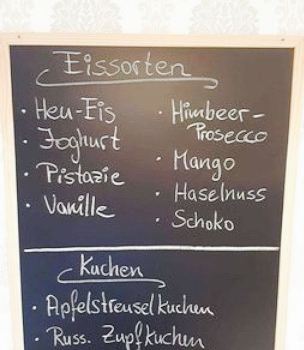 Eissorten
· Heu-Eis
· Joghurt
· Pistazie
· Vanille
· Himbeer-
Prosecco
· Mango
· Haselnuss
· Schoko
Kuchen
· Apfelstreuselkuchen
· Russ. Zupfkuchen